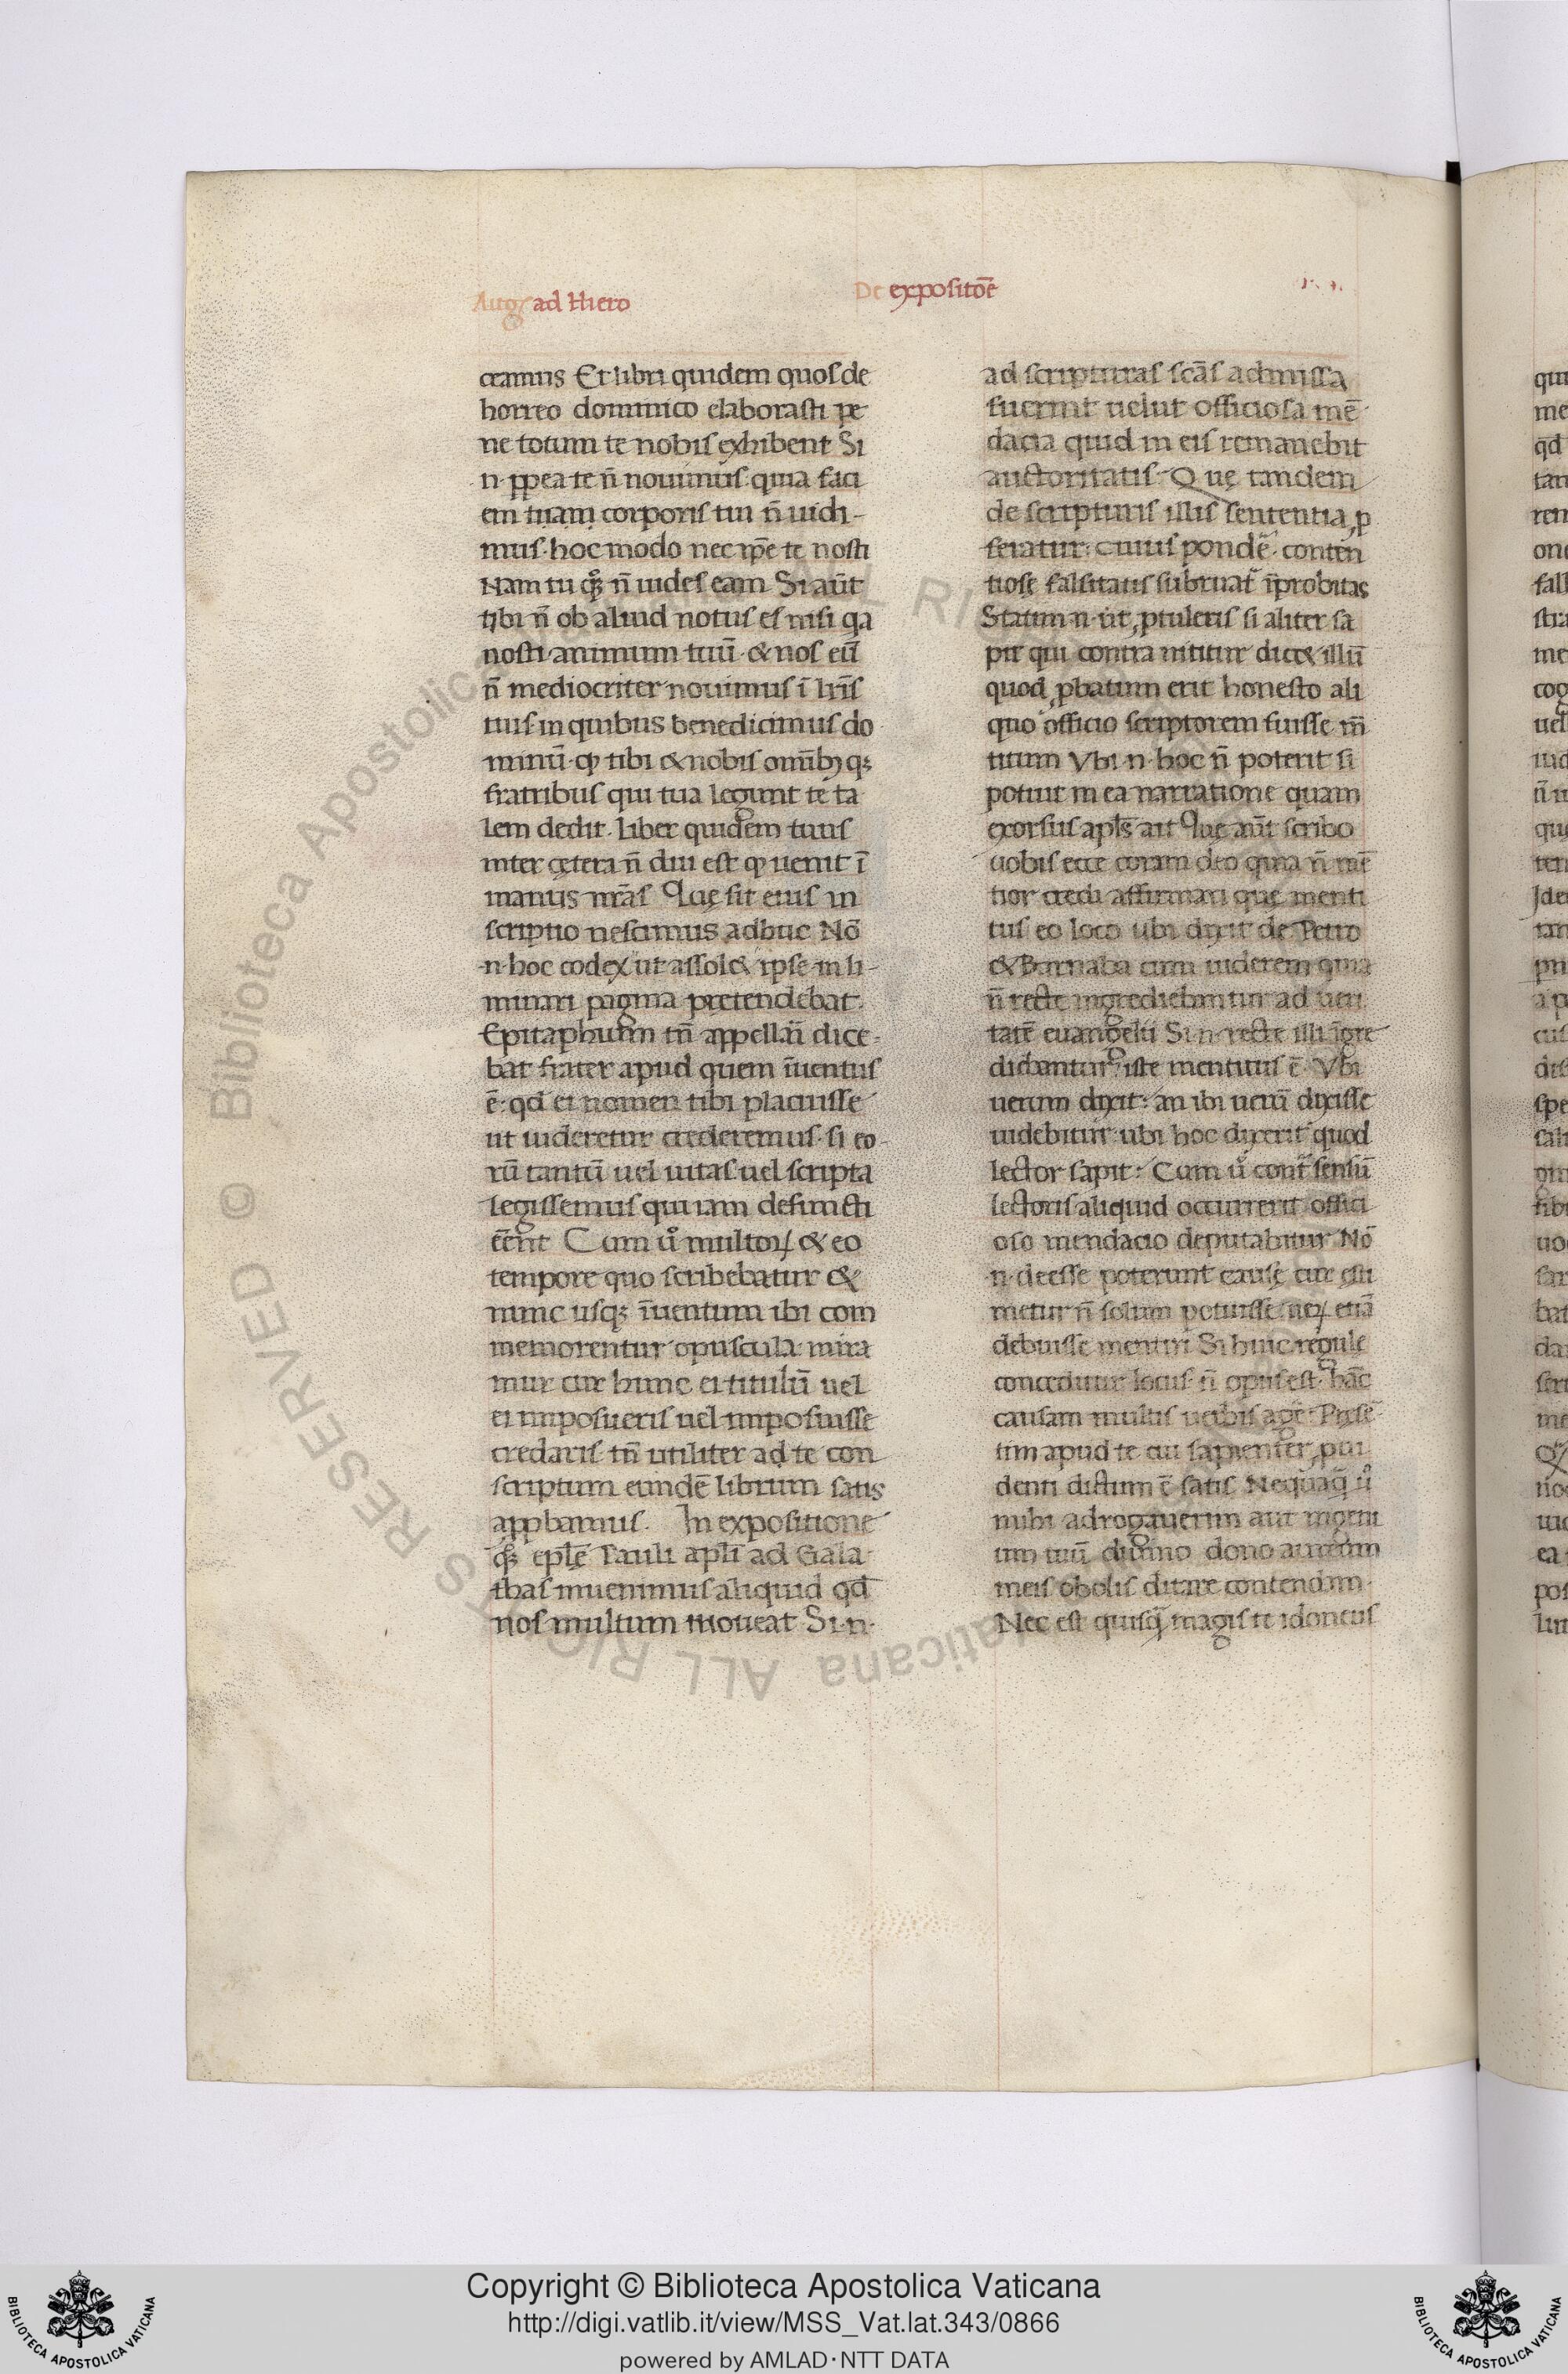 Aug ad Hiero
De expositõe
ceamus Et libri quidem quos de
horreo dominico elaborasti pe
ne totum te nobis exhibent Si
·n· ꝓpea te ñ nouimus quia faci
em tuam corporis tui ñ uidi-
mus· hoc modo nec ip̃e te nosti
Nam tu qꝫ ñ uides eam Si aut̃
tibi ñ ob aliud notus es nisi qa
nosti animum tuũ· & nos eũ
ñ mediocriter nouimus ĩ lr̃is
tuis· in quibus benedicimus do
minũ· qp tibi & nobis omĩbꝫ qꝫ
fratribus qui tua legunt te ta
lem dedit· Liber quidem tuus
inter cętera ñ diu est qp uenit ĩ
manus nr̃as Quę sit eius in
scriptio nescimus adhuc Nõ
·n· hoc codex ut assol& ipse in li-
minari pagina pretendebat
Epitaphium tñ appellari dice-
bat frater apud quem ĩuentus
ẽ· qd ei nomen tibi placuisse
ut uideretur crederemus· si eo-
rũ tantũ uel uitas uel scripta
legissemus qui iam defuncti
eẽnt Cum u̾ multoꝝ & eo
tempore quo scribebatur &
nunc usqꝫ ĩuentum ibi com
memorentur opuscula· mira
mur cur hunc ei titulũ uel
ei imposueris uel imposuisse
credaris· tñ utiliter ad te con
scriptum eundẽ librum satis
apꝓbamus· In expositione
qꝫ epl̃ę Pauli apl̃i ad Gala-
thas inuenimus aliquid qd
nos multum moueat Si ·n·
ad scripturas sc̃as admissa
fuerint uelut officiosa mẽ-
dacia quid in eis remanebit
auctoritatis· Quę tandem
de scripturis illis sententia ꝓ
feratur· cuius pondẽ· conten
tiosę falsitatis subruat̾ ĩprobitas
Statim ·n· ut ꝓtuleris si aliter sa
pit qui contra nititur dic& illũ
quod ꝓbatum erit honesto ali
quo officio scriptorem fuisse m̃
titum Vbi ·n· hoc ñ poterit si
potuit in ea narratione quam
exorsus apl̃s ait Quę aut̃ scribo
uobis ecce coram deo quia ñ mẽ
tior credi affirmari que menti
tus eo loco ubi dixit de Petro
& Barnaba cum uiderem quia
ñ recte ingrediebantur ad ueri
tatẽ euangelii Si ·n· recte illi ĩgre
diebantur· iste mentitus ẽ· Vbi
uerum dixit· an ibi uerũ dixisse
uidebitur· ubi hoc dixerit quod
lector sapit· Cum u̾ cont̃ sensũ
lectoris aliquid occurrerit offici
oso mendacio deputabitur Nõ
·n· deesse poterunt causę cur esti
metur ñ solum potuisse ueꝝ etiã
debuisse mentiri Si huic regule
conceditur locus· ñ opus est· hãc
causam multis uerbis agẽ· Presẽ-
tim apud te cui sapienter ꝓui
denti dictum ẽ satis Nequaq̃ u̾
mihi adrogauerim aut ingeni
um tuũ diuino dono aureum
meis obolis ditare contendam·
Nec est quisq̃ magis te idoneus
Copyright © Biblioteca Apostolica Vaticana
http://digi.vatlib.it/view/MSS_Vat.lat.343/0866
powered by AMLAD·NTT DATA